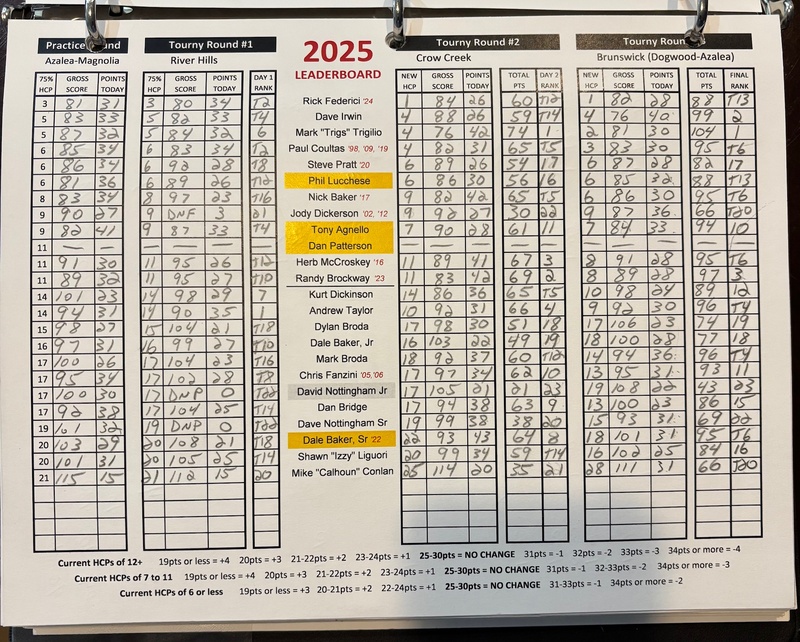 Practice Round Tourny Round #1 2025 Tourny Round #2 Tourny Round
Azalea-Magnolia River Hills LEADERBOARD Crow Creek Brunswick (Dogwood-Azalea)
75% HCP GROSS SCORE POINTS TODAY 75% HCP GROSS SCORE POINTS TODAY DAY 1 RANK NEW HCP GROSS SCORE POINTS TODAY TOTAL PTS DAY 2 RANK NEW HCP GROSS SCORE POINTS TODAY TOTAL PTS FINAL RANK
3 81 31 3 80 34 T2 Rick Federici '24 1 84 26 60 T12 1 82 28 88 T13
5 83 33 5 82 33 T4 Dave Irwin 4 88 26 59 T14 4 76 40 99 2
5 87 32 5 84 32 6 Mark "Trigs" Trigilio 4 76 42 74 1 2 81 30 104 1
6 85 34 6 83 34 T2 Paul Coultas '98, '09, '19 4 82 31 65 T5 3 83 30 95 T6
6 86 34 6 92 28 T8 Steve Pratt '20 6 89 26 54 17 6 87 28 82 17
6 81 36 6 89 26 T12 Phil Lucchese 6 86 30 56 16 6 85 32 88 T13
8 83 34 8 97 23 T16 Nick Baker '17 9 82 42 65 T5 6 86 30 95 T6
9 90 27 9 DNF 3 21 Jody Dickerson '02, '12 9 92 27 30 22 9 87 36 66 T20
9 82 41 9 87 33 T4 Tony Agnello 7 90 28 61 11 7 84 33 94 10
11 — — — — — — Dan Patterson — — — — — — — — — —
11 91 30 11 95 26 T12 Herb McCroskey '16 11 89 41 67 3 8 91 28 95 T6
11 89 32 11 95 27 T10 Randy Brockway '23 11 83 42 69 2 8 89 28 97 3
14 101 23 14 98 29 7 Kurt Dickinson 14 86 36 65 T5 10 98 24 89 12
14 94 31 14 90 35 1 Andrew Taylor 10 92 31 66 4 9 92 30 96 T4
15 98 27 15 104 21 T18 Dylan Broda 17 98 30 51 18 17 106 23 74 19
16 97 31 16 99 27 T10 Dale Baker, Jr 16 103 22 49 19 18 100 28 77 18
17 100 26 17 104 23 T16 Mark Broda 18 92 37 60 T12 14 94 36 96 T4
17 95 34 17 102 28 T8 Chris Fanzini '05,'06 17 97 34 62 10 13 95 31 93 11
17 100 30 17 DNP 0 T22 David Nottingham Jr 17 105 21 21 23 19 108 22 43 23
17 92 38 17 104 25 T14 Dan Bridge 17 94 38 63 9 13 100 23 86 15
19 101 32 19 DNP 0 T22 Dave Nottingham Sr 19 99 38 38 20 15 93 31 69 22
20 103 29 20 108 21 T18 Dale Baker, Sr '22 22 93 43 64 8 18 101 31 95 T6
20 101 31 20 105 25 T14 Shawn "Izzy" Liguori 20 99 34 59 T14 16 102 25 84 16
21 115 15 21 112 15 20 Mike "Calhoun" Conlan 25 114 20 35 21 28 111 31 66 T20
Current HCPs of 12+ 19pts or less = +4 20pts = +3 21-22pts = +2 23-24pts = +1 25-30pts = NO CHANGE 31pts = -1 32pts = -2 33pts = -3 34pts or more = -4
Current HCPs of 7 to 11 19pts or less = +4 20pts = +3 21-22pts = +2 23-24pts = +1 25-30pts = NO CHANGE 31pts = -1 32-33pts = -2 34pts or more = -3
Current HCPs of 6 or less 19pts or less = +3 20-21pts = +2 22-24pts = +1 25-30pts = NO CHANGE 31-33pts = -1 34pts or more = -2